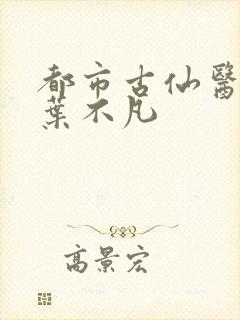 都市古仙醫
葉不凡
高景宏